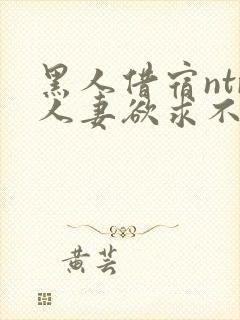 黑人借宿ntr
人妻欲求不
黄芸